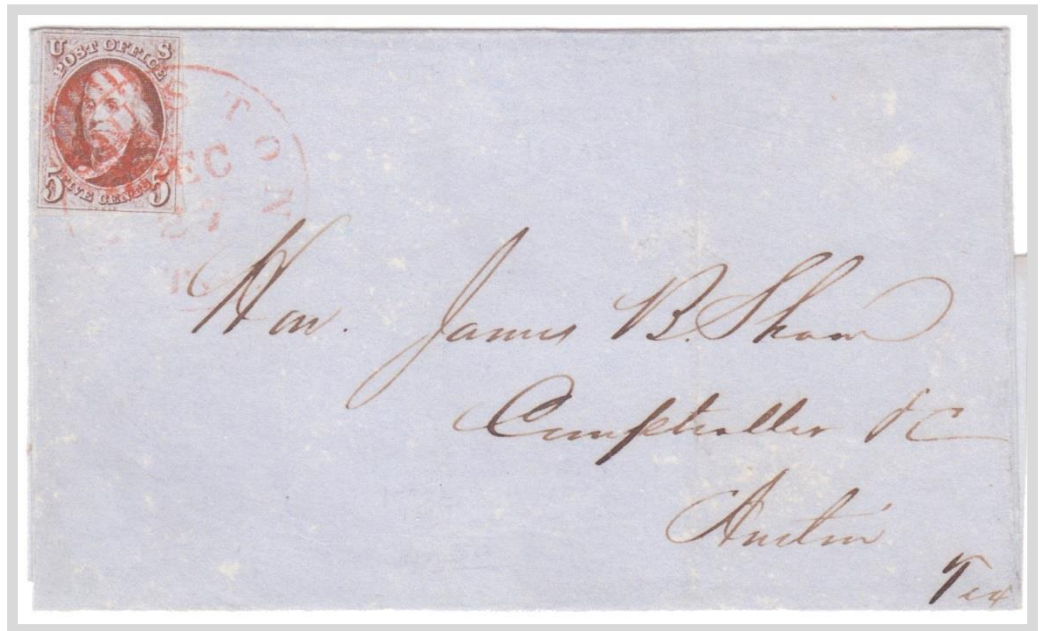 U S
POST OFFICE
5 FIVE CENTS 5
STON
DEC
Hon. James B. Shaw
Comptroller &C
Austin
Tex